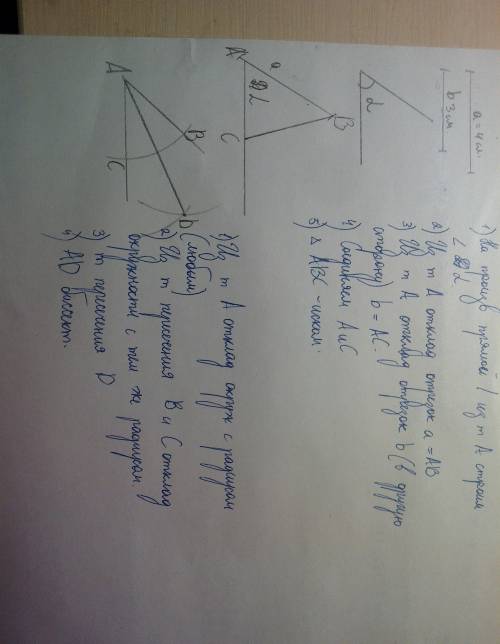 a = 4 см.
b 3 см
α
A
a
α
B
C
1) На произв прямой / из т А строим
∠ α
2) Из т А отклад отрезок a = AB
3) Из т А отклад отрезок b (в другую
сторону) b = AC.
4) Соединяем A и C
5) Δ ABC - иском.
A
B
C
D
1) Из т А отклад окруж с радиусом
(любым)
2) Из т пересечения B и C отклад
окружности с тем же радиусом.
3) т пересечения D
4) AD биссект.